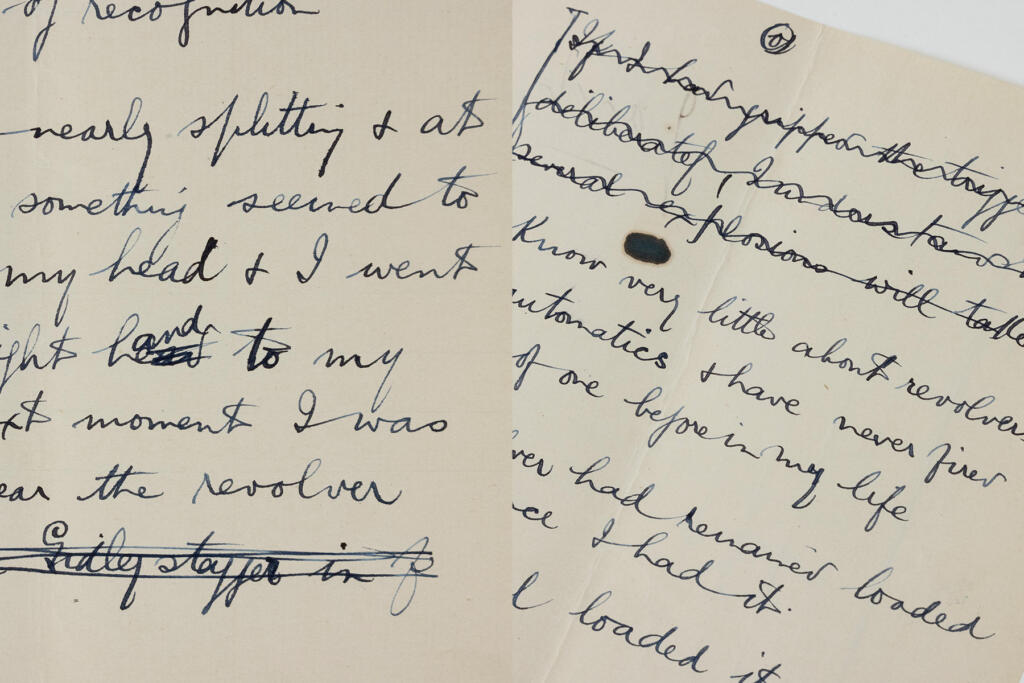 of recognition
nearly splitting & at
something seemed to
my head & I went
ght hand to my
xt moment I was
ear the revolver
Gidley stagger in f
a
If I having gripped the trigge
deliberately, I understand
several explosions will take
Know very little about revolvers
automatics & have never fired
of one before in my life
ver had remained loaded
ce I had it.
l loaded it